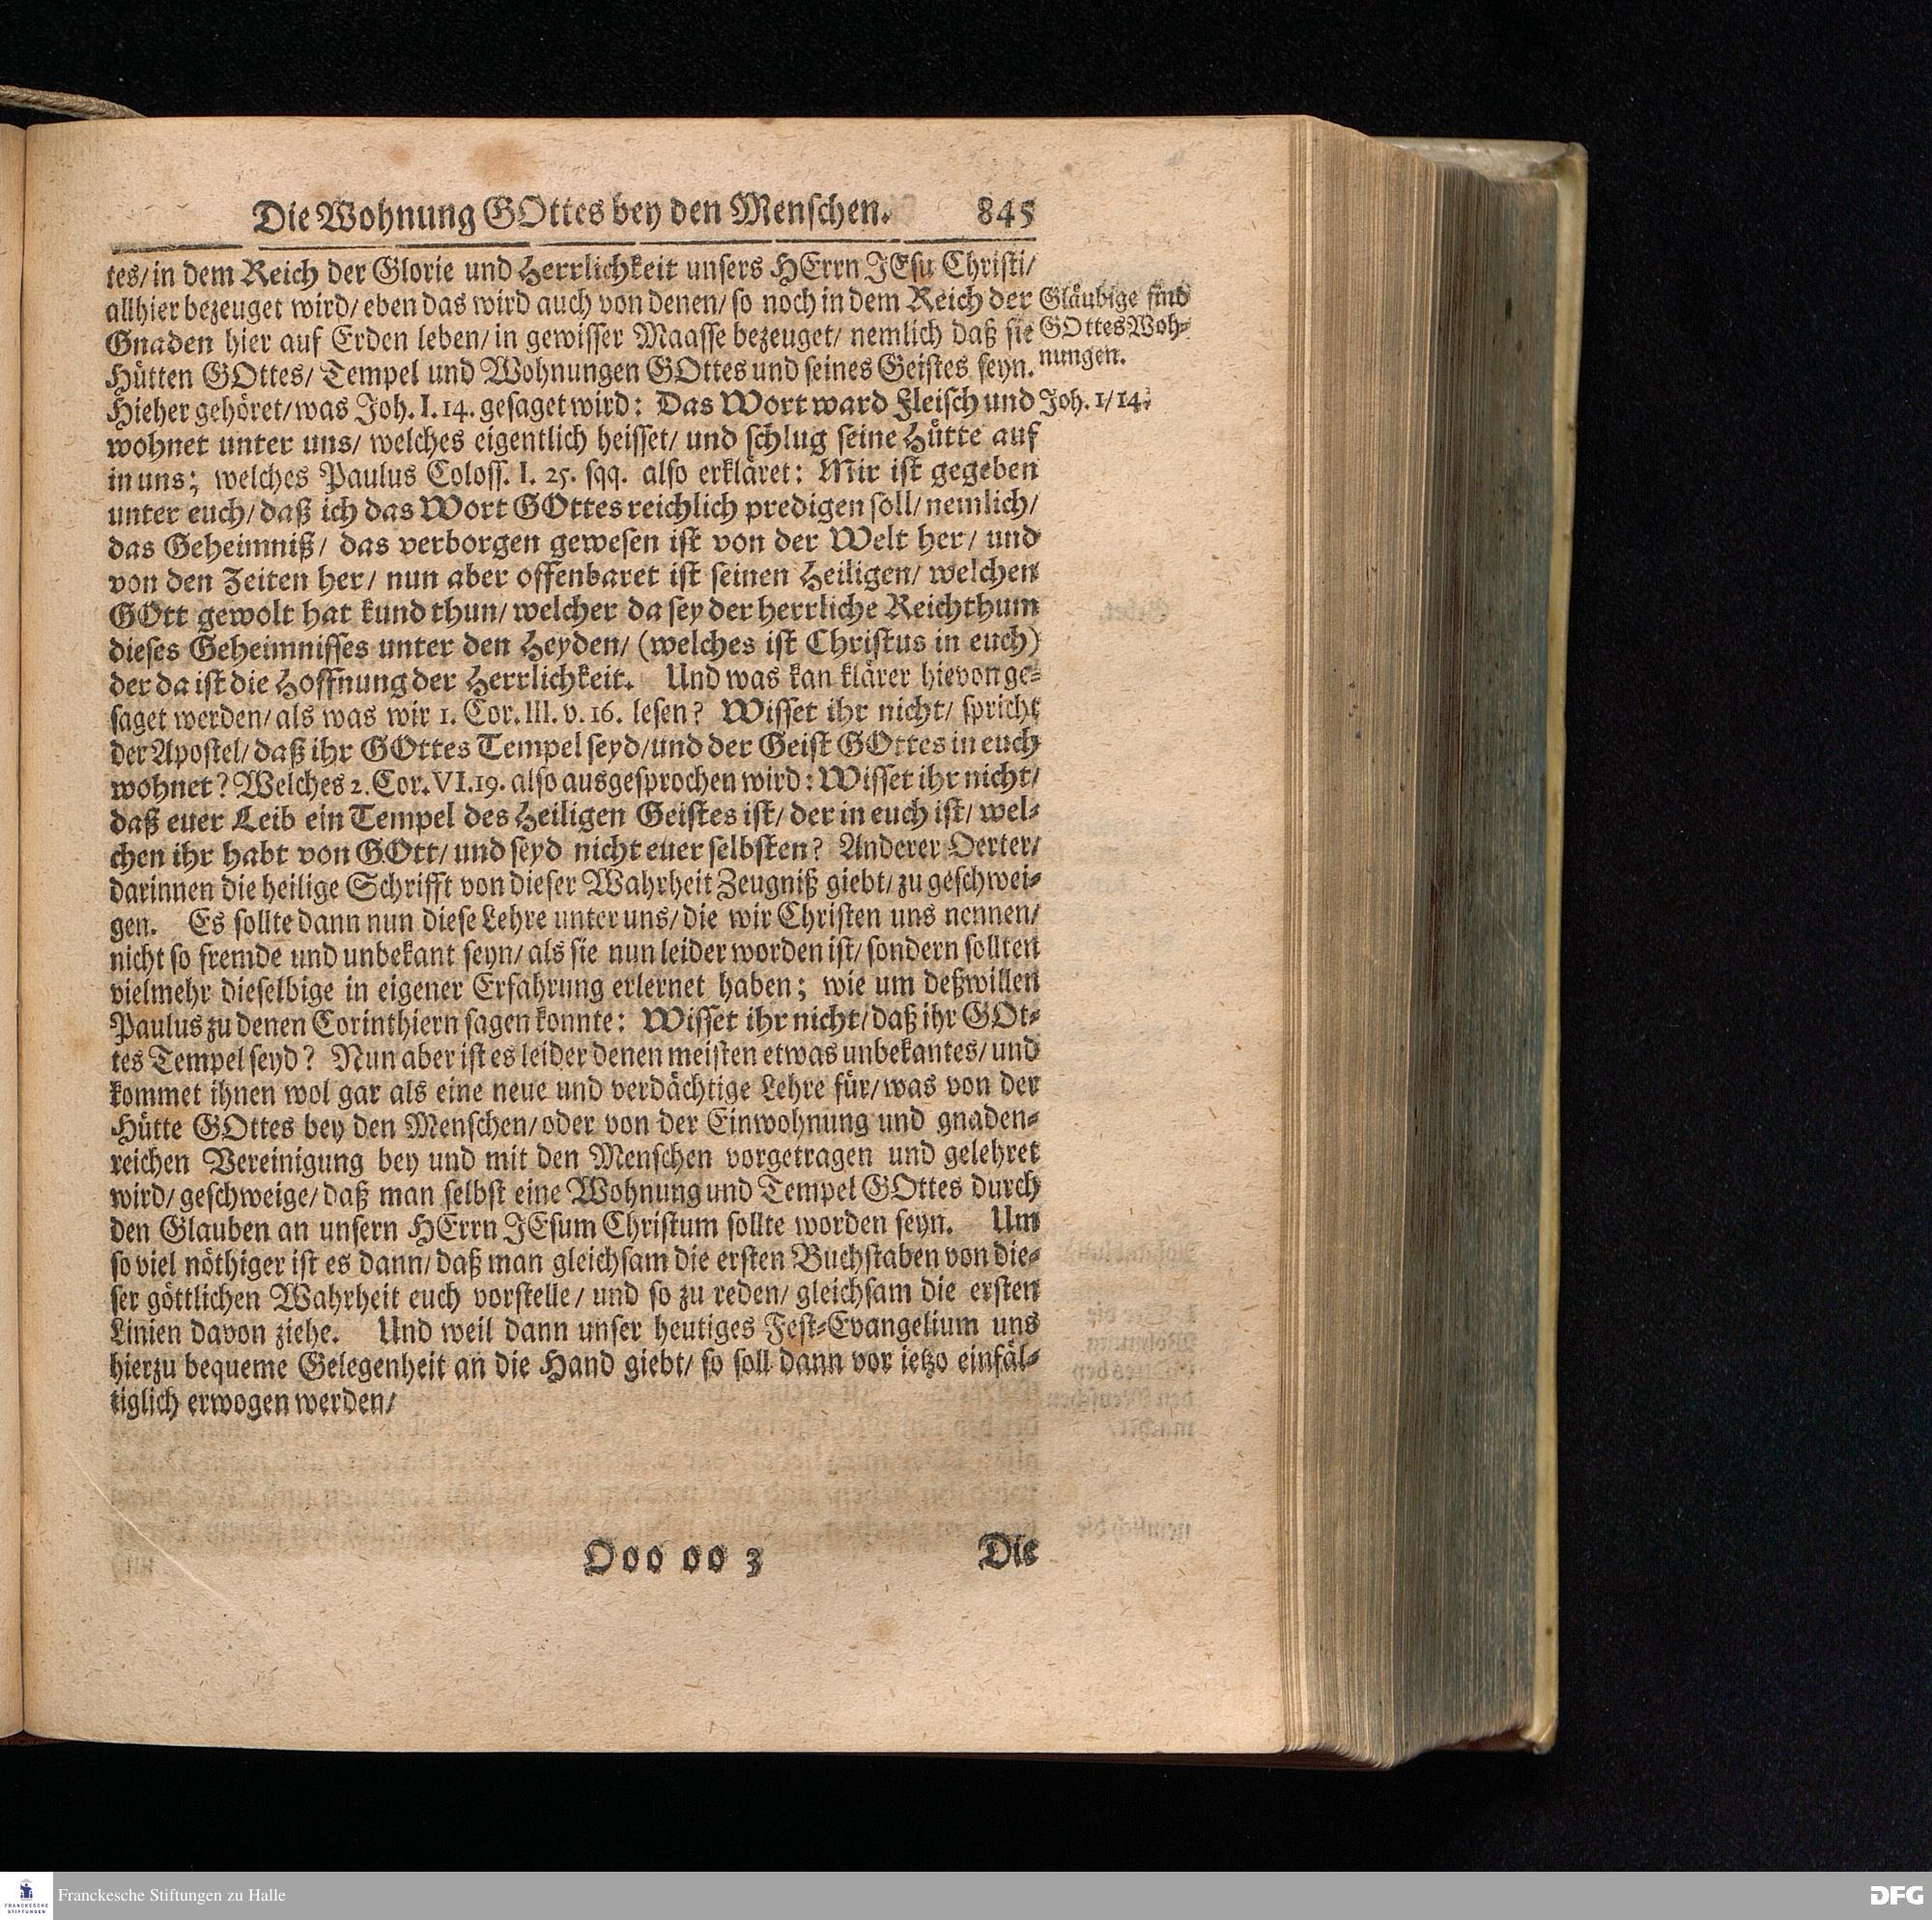 Die Wohnung GOttes bey den Menschen. 845
tes/ in dem Reich der Glorie und Herrlichkeit unsers HErrn JEsu Christi/
allhier bezeuget wird/ eben das wird auch von denen/ so noch in dem Reich der
Gnaden hier auf Erden leben/ in gewisser Maasse bezeuget/ nemlich daß sie
Hütten GOttes/ Tempel und Wohnungen GOttes und seines Geistes seyn.
Gläubige sind
GOttes Woh-
nungen.
Hieher gehöret/ was Joh. I. 14. gesaget wird: Das Wort ward Fleisch und
Joh. 1/14.
wohnet unter uns/ welches eigentlich heisset/ und schlug seine Hütte auf
in uns; welches Paulus Coloss. I. 25. sqq. also erkläret: Mir ist gegeben
unter euch/ daß ich das Wort GOttes reichlich predigen soll/ nemlich/
das Geheimniß/ das verborgen gewesen ist von der Welt her/ und
von den Zeiten her/ nun aber offenbaret ist seinen Heiligen/ welchen
GOtt gewolt hat kund thun/ welcher da sey der herrliche Reichthum
dieses Geheimnisses unter den Heyden/ (welches ist Christus in euch)
der da ist die Hoffnung der Herrlichkeit. Und was kan klärer hievon ge-
saget werden/ als was wir 1. Cor. III. v. 16. lesen? Wisset ihr nicht/ spricht
der Apostel/ daß ihr GOttes Tempel seyd/ und der Geist GOttes in euch
wohnet? Welches 2. Cor. VI. 19. also ausgesprochen wird: Wisset ihr nicht/
daß euer Leib ein Tempel des Heiligen Geistes ist/ der in euch ist/ wel-
chen ihr habt von GOtt/ und seyd nicht euer selbsten? Anderer Oerter/
darinnen die heilige Schrifft von dieser Wahrheit Zeugniß giebt/ zu geschwei-
gen. Es sollte dann nun diese Lehre unter uns/ die wir Christen uns nennen/
nicht so fremde und unbekant seyn/ als sie nun leider worden ist/ sondern sollten
vielmehr dieselbige in eigener Erfahrung erlernet haben; wie um deßwillen
Paulus zu denen Corinthiern sagen konnte: Wisset ihr nicht/ daß ihr GOt-
tes Tempel seyd? Nun aber ist es leider denen meisten etwas unbekantes/ und
kommet ihnen wol gar als eine neue und verdächtige Lehre für/ was von der
Hütte GOttes bey den Menschen/ oder von der Einwohnung und gnaden-
reichen Vereinigung bey und mit den Menschen vorgetragen und gelehret
wird/ geschweige/ daß man selbst eine Wohnung und Tempel GOttes durch
den Glauben an unsern HErrn JEsum Christum sollte worden seyn. Um
so viel nöthiger ist es dann/ daß man gleichsam die ersten Buchstaben von die-
ser göttlichen Wahrheit euch vorstelle/ und so zu reden/ gleichsam die ersten
Linien davon ziehe. Und weil dann unser heutiges Fest-Evangelium uns
hierzu bequeme Gelegenheit an die Hand giebt/ so soll dann vor ietzo einfäl-
tiglich erwogen werden/
Ooo oo 3 Die
FRANCKESCHE
STIFTUNGEN
Franckesche Stiftungen zu Halle
DFG